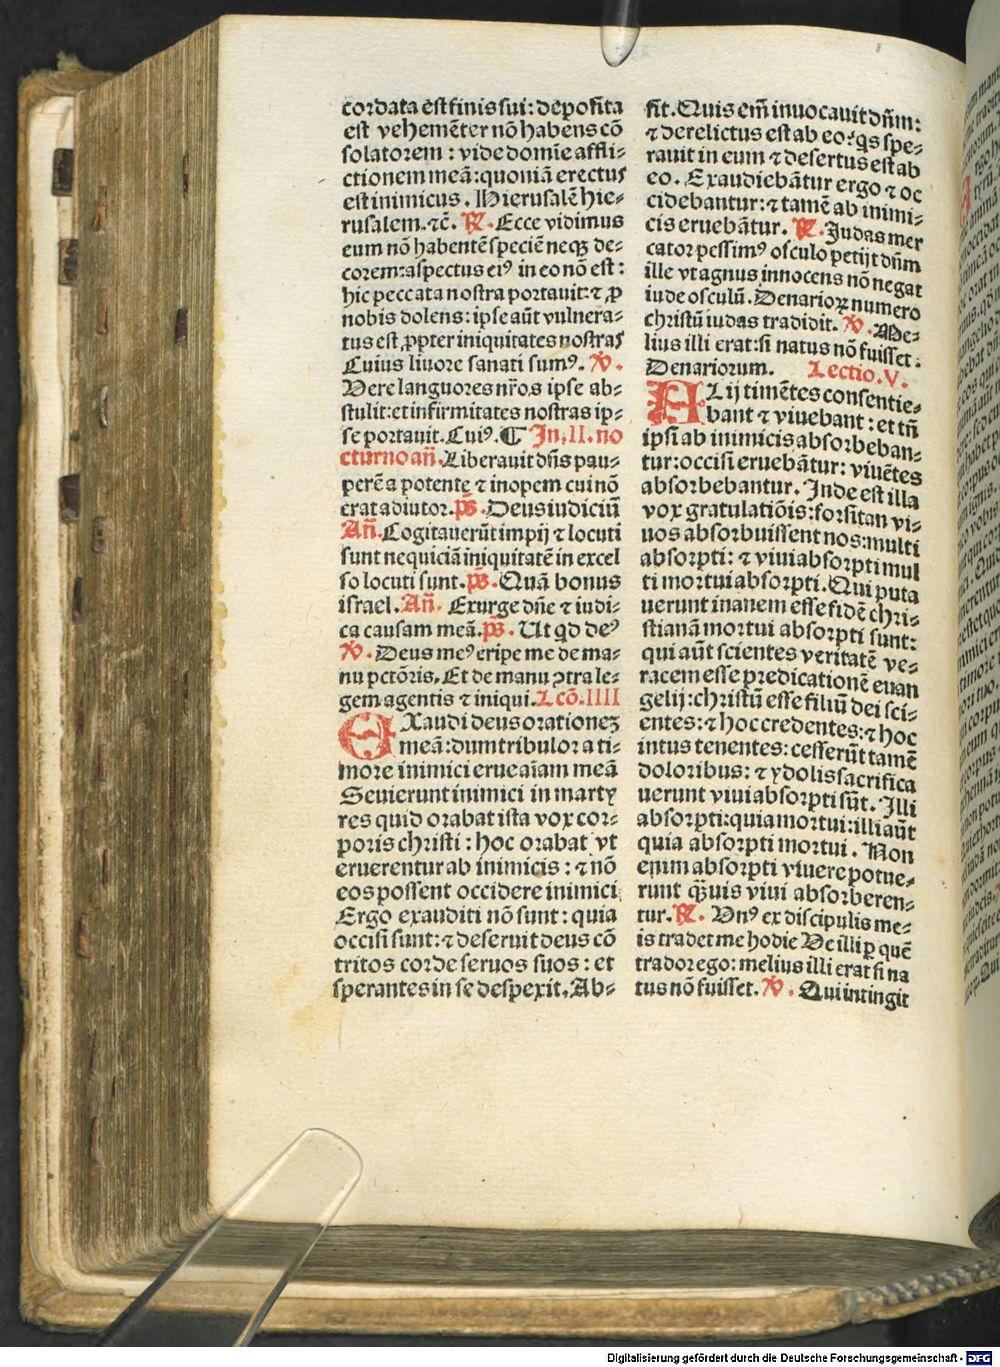 cordata est finis sui: deposita
est vehemēter nō habens cō
solatorem : vide domīe affli-
ctionem meā: quoniā erectus
est inimicus . Hierusalē hie-
rusalem. ⁊č. ℟. Ecce vidimus
eum nō habentē speciē neqꝫ de-
corem: aspectus eiꝰ in eo nō est :
hic peccata nostra portauit: ⁊ ꝓ
nobis dolens: ipse aūt vulnera-
tus est ꝓpter iniquitates nostras
Cuius liuore sanati sumꝰ. ℣.
Vere languores nr̄os ipse ab-
stulit: et infirmitates nostras ip-
se portauit. Cuiꝰ. ¶ In. II. no
cturno añ. Liberauit dñs pau-
perē a potente ⁊ inopem cui nō
erat adiutor. p̄s. Deus iudiciū
Añ. Cogitauerūt impij ⁊ locuti
sunt nequiciā iniquitatē in excel
so locuti sunt. p̄s. Quā bonus
israel. Añ. Exurge dñe ⁊ iudi-
ca causam meā. p̄s. Ut qd deꝰ
℣. Deus meꝰ eripe me de ma-
nu pctōris. Et de manu ꝯtra le-
gem agentis ⁊ iniqui. Lcō. IIII
EXaudi deus orationeꝫ
meā: dum tribulor a ti-
more inimici erue aīam meā
Seuierunt inimici in marty
res quid orabat ista vox cor-
poris christi : hoc orabat vt
eruerentur ab inimicis : ⁊ nō
eos possent occidere inimici
Ergo exauditi nō sunt : quia
occisi sunt: ⁊ deseruit deus cō
tritos corde seruos suos : et
sperantes in se despexit. Ab-
sit. Quis em̄ inuocauit dñm:
⁊ derelictus est ab eo: qs spe-
rauit in eum ⁊ desertus est ab
eo. Exaudiebātur ergo ⁊ oc
cidebantur: ⁊ tamē ab inimi-
cis eruebātur. ℟. Judas mer
cator pessimꝰ osculo petijt dñm
ille vt agnus innocens nō negat
iude osculū. Denarioꝝ numero
christū iudas tradidit. ℣. Me-
lius illi erat: si natus nō fuisset .
Denariorum. Lectio. V.
ALij timētes consentie-
bant ⁊ viuebant : et tñ
ipsi ab inimicis absorbeban-
tur: occisi eruebātur: viuētes
absorbebantur. Inde est illa
vox gratulatiōis: forsitan vi-
uos absorbuissent nos: multi
absorpti: ⁊ viui absorpti mul
ti mortui absorpti. Qui puta
uerunt inanem esse fidē chri-
stianā mortui absorpti sunt:
qui aūt scientes veritatē ve-
racem esse predicationē euan
gelij: christū esse filiū dei sci-
entes: ⁊ hoc credentes: ⁊ hoc
intus tenentes: cesserūt tamē
doloribus: ⁊ ydolis sacrifica
uerunt viui absorpti sūt. Illi
absorpti: quia mortui: illi aūt
quia absorpti mortui . Non
enim absorpti viuere potue-
runt quis viui absorberen-
tur. ℟. Vnꝰ ex discipulis me-
is tradet me hodie Ve illi ꝑ quē
trador ego: melius illi erat si na
tus nō fuisset. ℣. Qui intingit
Digitalisierung gefördert durch die Deutsche Forschungsgemeinschaft - DFG